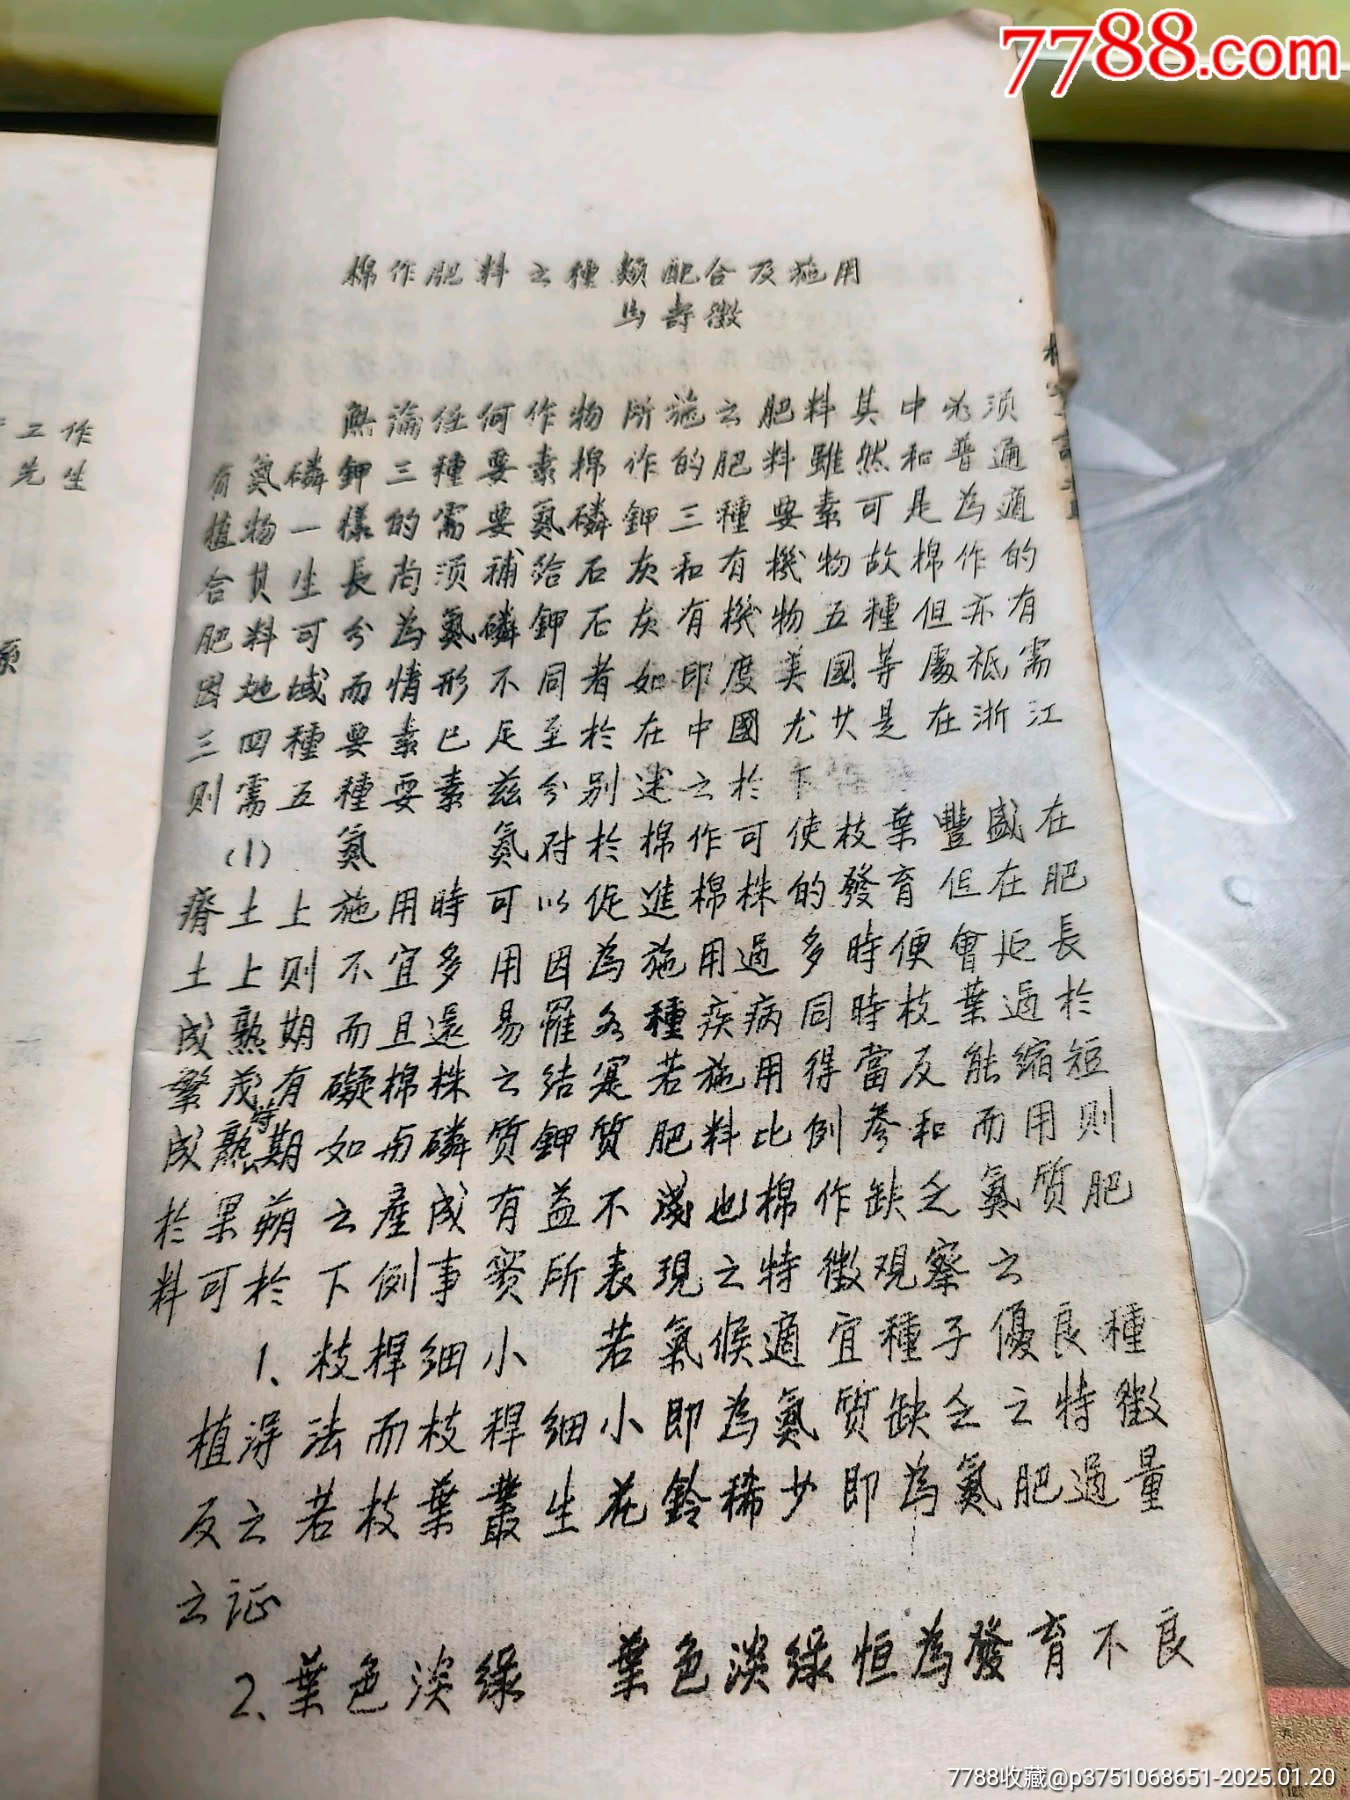 7788.com
棉作肥料之種類配合及施用
馬壽徵
無論任何作物所施之肥料其中必须
有氮磷鉀三種要素棉作的肥料雖然和普通
植物一樣的需要氮磷鉀三種要素可是為適
合其生長尚须補给石灰和有機物故棉作的
肥料可分為氮磷鉀石灰有機物五種但亦有
因地域而情形不同者如印度美國等處祗需
三四種要素已足至於在中國尤其是在浙江
则需五種要素兹分别述之於下
(1) 氮 氮对於棉作可使枝葉豐盛在
瘠土上施用時可以促進棉株的發育但在肥
土上则不宜多用因為施用過多時便會延長
成熟期而且還易罹各種疾病同時枝葉過於
繁茂有礙棉株之结实若施用得當反能缩短
成熟時期如与磷質鉀質肥料比例参和而用则
於果蒴之産成有益不淺也棉作缺乏氮质肥
料可於下例事實所表現之特徵观察之
1、枝桿细小 若氣候適宜種子優良種
植淂法而枝稈细小即為氮质缺乏之特徵
反之若枝葉叢生花鈴稀少即為氮肥過量
之证
2、葉色淡綠 葉色淡綠恒為發育不良
工作
先生
7788收藏@p3751068651-2025.01.20